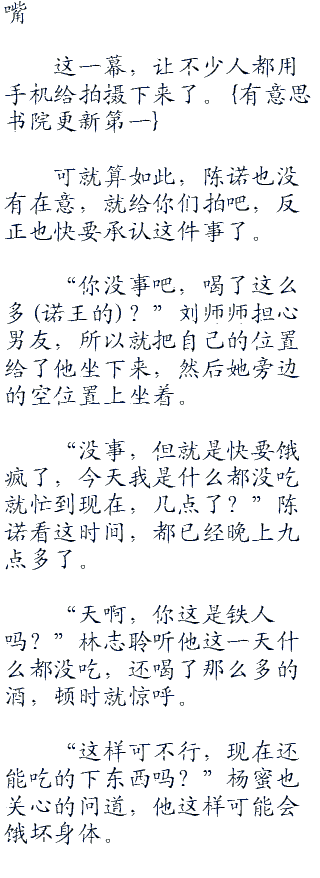 嘴
这一幕，让不少人都用
手机给拍摄下来了。{有意思
书院更新第一}
可就算如此，陈诺也没
有在意，就给你们拍吧，反
正也快要承认这件事了。
“你没事吧，喝了这么
多(诺王的)？”刘师师担心
男友，所以就把自己的位置
给了他坐下来，然后她旁边
的空位置上坐着。
“没事，但就是快要饿
疯了，今天我是什么都没吃
就忙到现在，几点了？”陈
诺看这时间，都已经晚上九
点多了。
“天啊，你这是铁人
吗？”林志聆听他这一天什
么都没吃，还喝了那么多的
酒，顿时就惊呼。
“这样可不行，现在还
能吃的下东西吗？”杨蜜也
关心的问道，他这样可能会
饿坏身体。